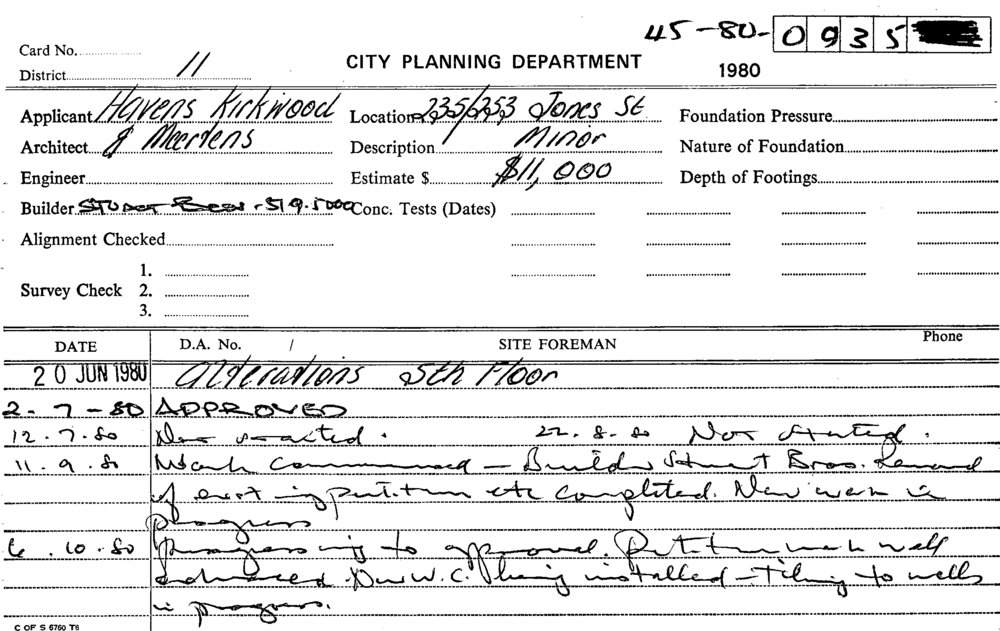 45-80-0935
Card No.
District 11
CITY PLANNING DEPARTMENT
1980
Applicant Havens Kirkwood
Location 235/253 Jones St
Foundation Pressure
Architect & Meertens
Description Minor
Nature of Foundation
Engineer
Estimate $ $11,000
Depth of Footings
Builder STUART BROS - 519.5000
Conc. Tests (Dates)
Alignment Checked
Survey Check
1.
2.
3.
DATE
D.A. No. /
SITE FOREMAN
Phone
20 JUN 1980 Alterations 5th Floor
2-7-80 APPROVED
12.7.80 Not started. 22.8.80 Not started.
11.9.80 Work commenced - Builder Stuart Bros. Removal
of existing partition etc completed. New work in
progress
6.10.80 Progressing to approval. Partition work well
advanced. New W.C. being installed - Tiling to walls
in progress.
C OF S 6760 T6